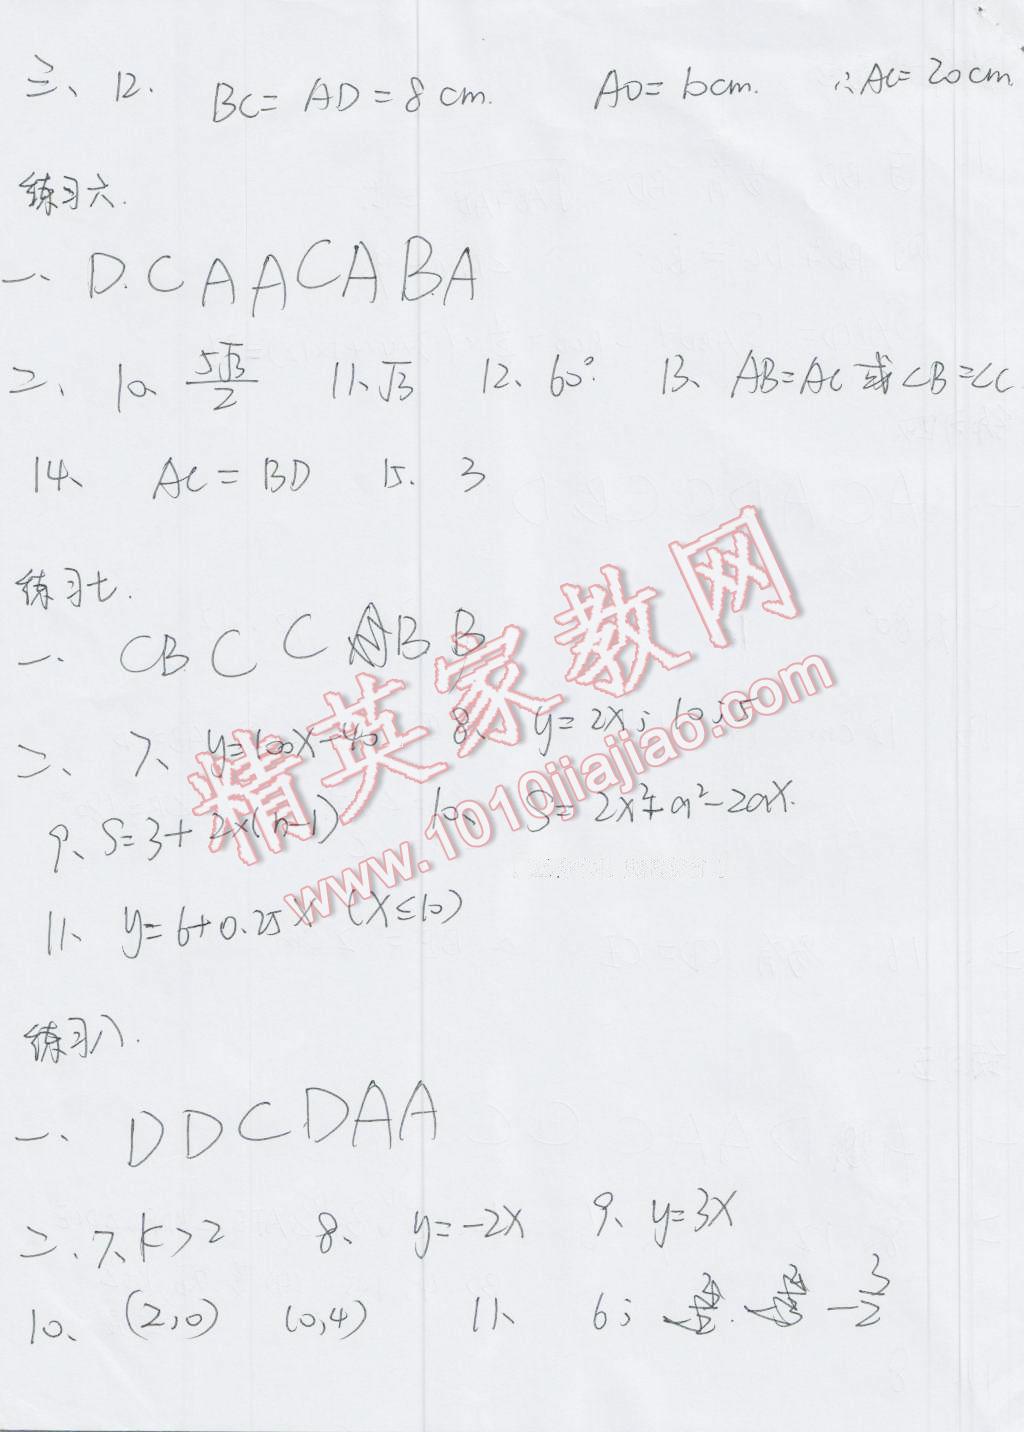 三、12. BC=AD=8cm. AO=10cm. ∴AC=20cm
练习六.
一、D.CAACABA
二、10、5√3/2 11、√3 12、60° 13、AB=AC或∠B=∠C
14、AC=BD 15. 3
练习七.
一、CBCCBB
二、7、y=100x-40 8、y=2x; 10;5
9、S=3+2×(n-1) 10、S=2x²+a²-2ax.
11、y=6+0.25x (x≤10)
练习八.
一、DDCDAA
二、7、k>2 8、y=-2x 9、y=3x
10、(2,0) (0,4) 11、6; -3/2
精英家教网
www.1010jiajiao.com